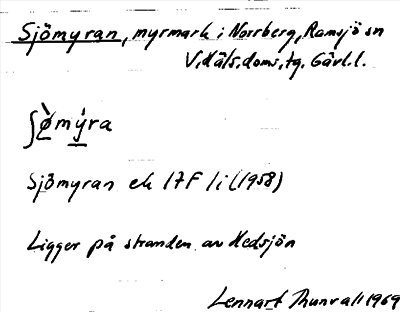 Sjömyran, myrmark i Norrberg, Ramsjö sn
V. Häls. doms. tg. Gävl. l.
ʃø̀mýra
Sjömyran ek 17F 1i (1958)
Ligger på stranden av Hedsjön
Lennart Thunvall 1969